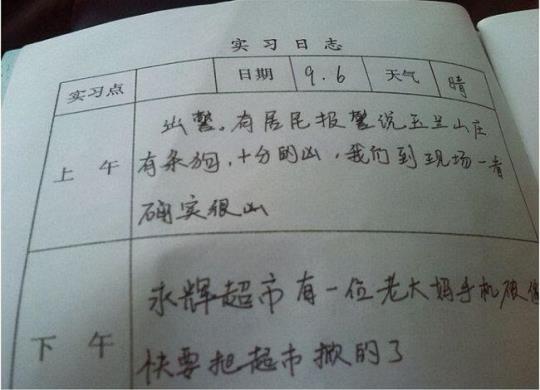 实习日志
实习点 日期 9.6 天气 晴
上午
出警。有居民报警说玉兰山庄
有条狗,十分的凶,我们到现场一看
确实很凶
下午
永辉超市有一位老大妈手机被偷
快要把超市掀的了